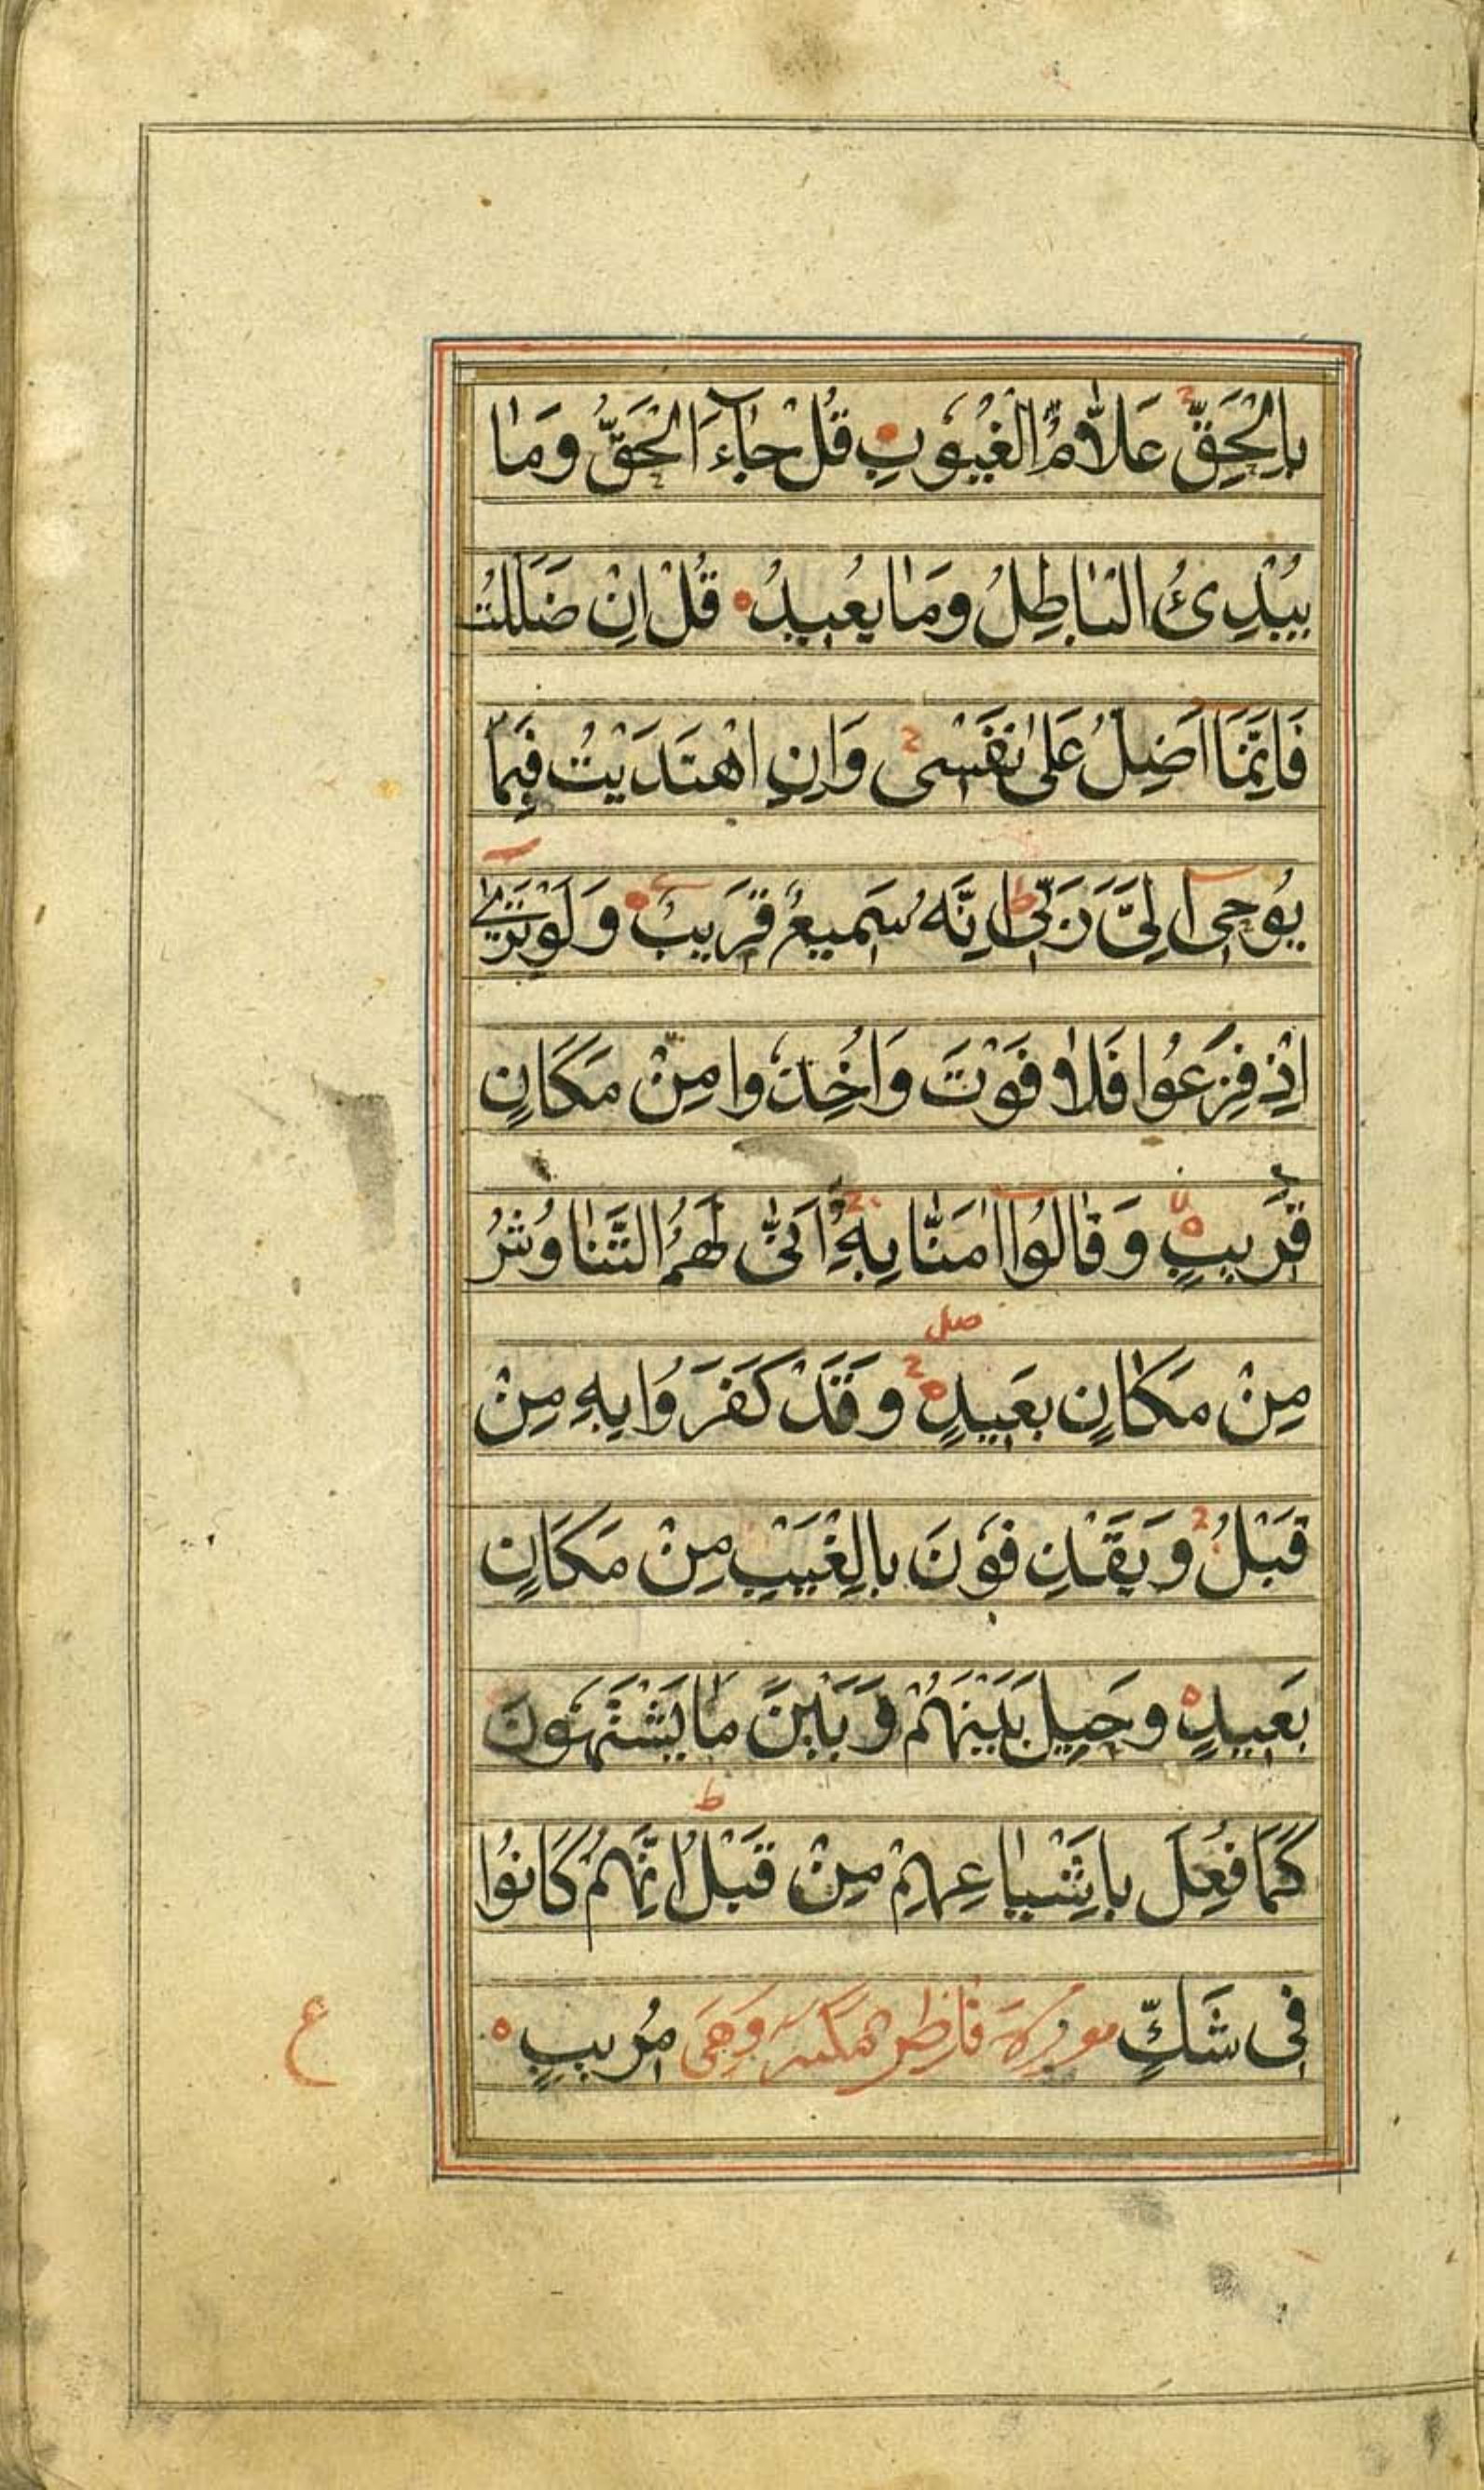 بِالْحَقِّ عَلَّامُ الْغُيُوبِ قُلْ جَآءَ الْحَقُّ وَمَا
يُبْدِئُ الْبَاطِلُ وَمَا يُعِيدُ قُلْ اِنْ ضَلَلْتُ
فَاِنَّمَا اَضِلُّ عَلٰى نَفْسِى وَاِنِ اهْتَدَيْتُ فَبِمَا
يُوحِى اِلَىَّ رَبِّى ط اِنَّهُ سَمِيعٌ قَرِيبٌ وَلَوْ تَرٰى
اِذْ فَزِعُوا فَلَا فَوْتَ وَاُخِذُوا مِنْ مَكَانٍ
قَرِيبٍ وَقَالُوا اٰمَنَّا بِهِ وَاَنّٰى لَهُمُ التَّنَاوُشُ
صل
مِنْ مَكَانٍ بَعِيدٍ وَقَدْ كَفَرُوا بِهِ مِنْ
قَبْلُ وَيَقْذِفُونَ بِالْغَيْبِ مِنْ مَكَانٍ
بَعِيدٍ وَحِيلَ بَيْنَهُمْ وَبَيْنَ مَا يَشْتَهُونَ
كَمَا فُعِلَ بِاَشْيَاعِهِمْ مِنْ قَبْلُ ط اِنَّهُمْ كَانُوا
فِى شَكٍّ سورة فاطر مكية وهى مُرِيبٍ
ع